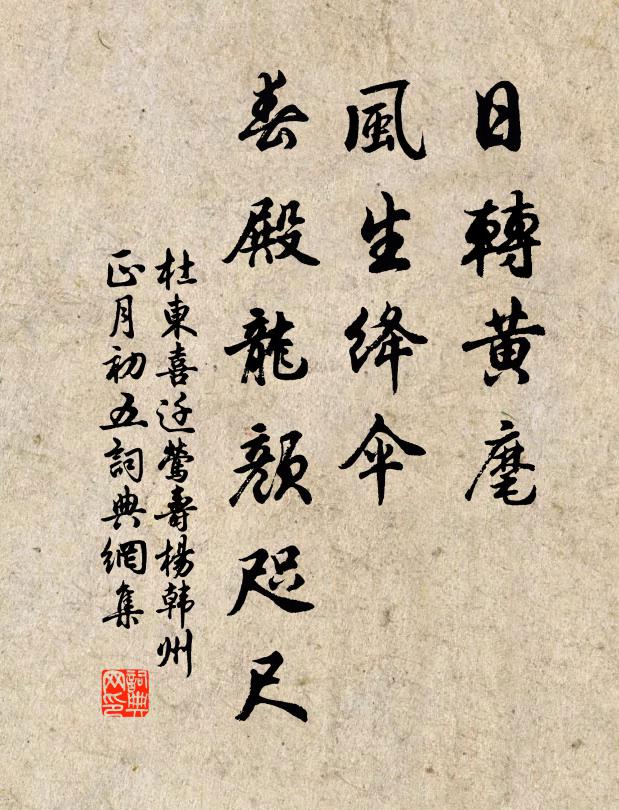 日轉黄麾
風生绛伞
春殿龍顏咫尺
杜東喜迁鶯壽楊韩州
正月初五詞典網集
詞典网印